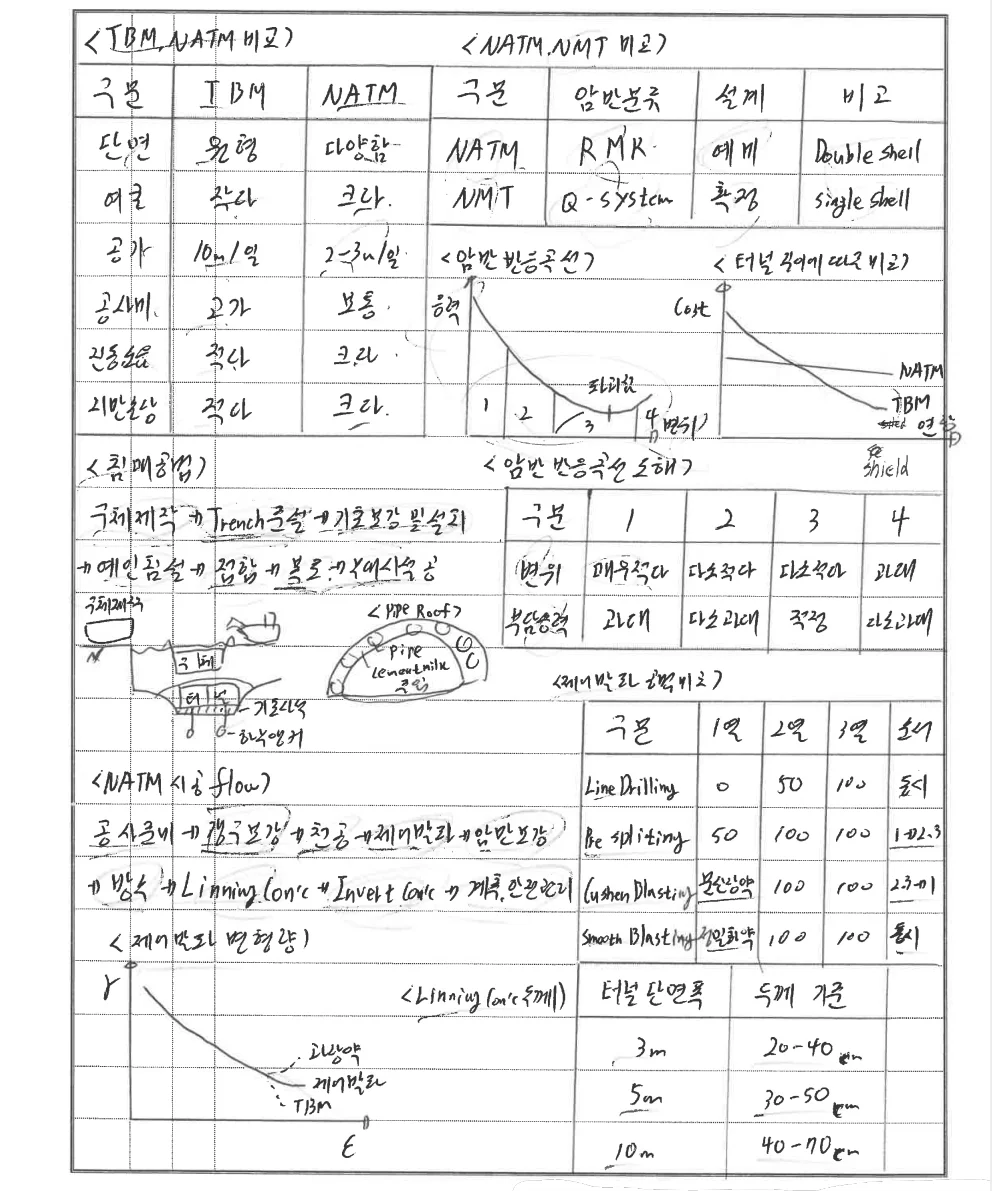 <TBM, NATM 비교>
구분 TBM NATM
단면 원형 다양함
여굴 작다 크다.
공기 10m/일 2~3m/일
공사비. 고가 보통.
진동소음 적다 크다.
지반손상 적다 크다.
<NATM, NMT 비교>
구분 암반분류 설계 비고
NATM RMR 예비 Double shell
NMT Q-system 확정 single shell
<암반 반응곡선>
응력
1 2 3 4
변위
<터널 길이에 따른 비교>
Cost
NATM
TBM
shield
<침매공법>
구체제작 → Trench준설 → 기초보강 및 설치
→ 예인침설 → 접합 → 복토 → 부대시설 공
구체제작
구체
터널
기초사석
하부앵커
<Pipe Roof>
Pipe
Cementmilk
주입
<암반 반응곡선 도해>
구분 1 2 3 4
변위 매우적다 다소적다 다소적다 과대
부담응력 과대 다소과대 적정 다소과대
<제어발파 공법비교>
구분 1열 2열 3열 순서
Line Drilling 0 50 100 동시
Pre spliting 50 100 100 1→2.3
Cushen Blasting 분산장약 100 100 2.3→1
Smooth Blasting 정밀화약 100 100 동시
<NATM 시공 flow>
공사준비 → 갱구보강 → 천공 → 제어발파 → 암반보강
→ 방수 → Linning Con'c → Invert Con'c → 계측, 안전관리
<제어발파 변형량>
γ
과장약
제어발파
TBM
ε
<Linning Con'c 두께>
터널 단면폭 두께 기준
3m 20-40cm
5m 30-50cm
10m 40-70cm